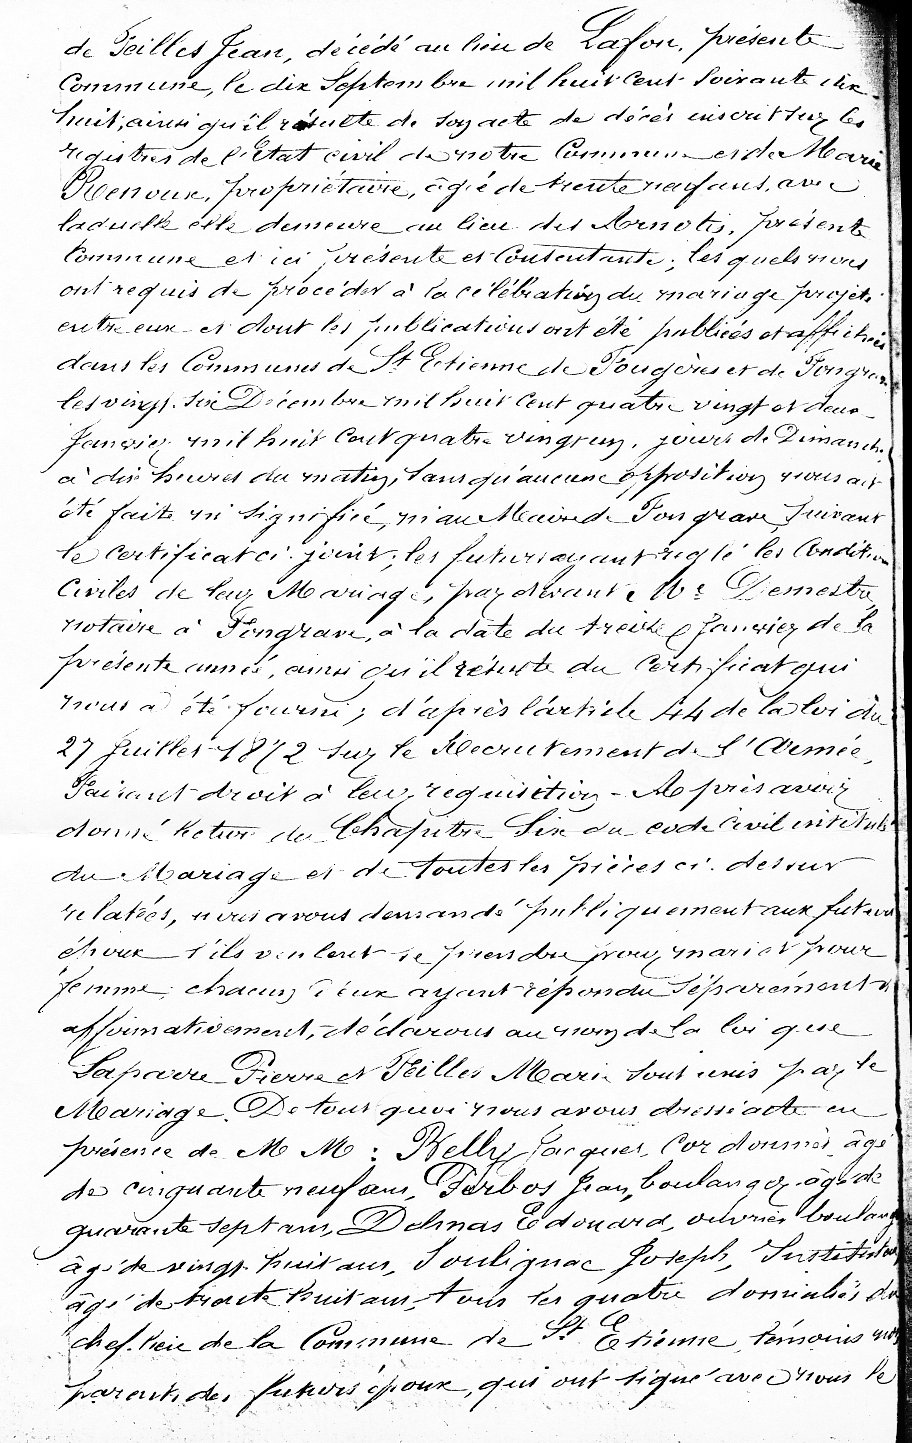 de Feilles Jean, décédé au lieu de Lafon, présente
Commune, le dix Septembre mil huit cent soixante dix-
huit, ainsi qu'il résulte de son acte de décès inscrit sur les
registres de l'Etat civil de notre Commune et de Marie
Renoux, propriétaire, âgée de trente neuf ans, avec
laquelle elle demeure au lieu des Arnotis, présente
Commune et ici présente et Consentante; les quels nous
ont requis de procéder à la célébration du mariage projeté
entre eux et dont les publications ont été publiées et affichées
dans les Communes de St Etienne de Fougères et de Fongrave
les vingt-six Décembre mil huit cent quatre vingt et deux
Janvier mil huit cent quatre vingt un, jours de Dimanche,
à dix heures du matin, sans qu'aucune opposition nous ait
été faite ni signifiée, ni au Maire de Fongrave, suivant
le certificat ci-joint; les futurs ayant réglé les Condition
Civiles de leur Mariage, par devant Me Demestre
notaire à Fongrave, à la date du treize Janvier de la
présente année, ainsi qu'il résulte du Certificat qui
nous a été fourni; d'après l'article 44 de la loi du
27 Juillet 1872 sur le Recrutement de l'Armée,
Faisant droit à leur requisition - Après avoir
donné lecture du Chapitre Six du code Civil intitulé
du Mariage et de toutes les pièces ci-dessus
relatées, nous avons demandé publiquement aux futurs
époux s'ils veulent se prendre pour mari et pour
femme, chacun d'eux ayant répondu séparément et
affirmativement, déclarons au nom de la loi que
Laparre Pierre et Feilles Marie sont unis par le
Mariage. De tout quoi nous avons dressé acte en
présence de M M: Relly Jacques, Cordonnier, âgé
de cinquante neuf ans, Ferbos Jean, boulanger, âgé de
quarante sept ans, Delmas Edouard, ouvrier boulanger
âgé de vingt huit ans, Soulignac Joseph, Instituteur,
âgé de trente huit ans, tous les quatre domiciliés du
chef-lieu de la Commune de St Etienne, témoins non
parents des futurs époux, qui ont signé avec nous le